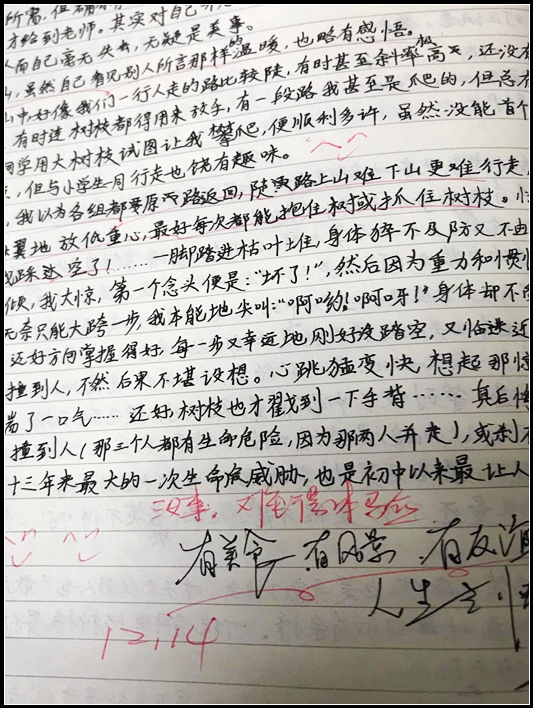 所需,但
才给到老师。其实对自己
人而自己毫无失去,无疑是美事。
山,虽然自己看见别人所言那样的温暖,也略有感悟。
山中,好像我们一行人走的路比较陡,有时甚至斜率极高,还没有
有时连树枝都得用来放手,有一段路我甚至是爬的,但总有
同学用大树枝试图让我攀爬,便顺利多许,虽然没能首个
但与小学生同行走也饶有趣味。
我以为各组都要原路返回,陡峭路上山难下山更难行走,
翼地放低重心,最好每次都能抱住树或抓住树枝。
踩迷空了!……一脚踏进枯叶堆,身体猝不及防又不由
倾,我大惊,第一个念头便是:“坏了!”,然后因为重力和惯
无奈只能大跨一步,我本能地尖叫:“啊哟!啊呀!”身体却不
还好方向掌握得好,每一步又幸运地刚好没踏空,又临迷近
撞到人,不然后果不堪设想。心跳猛变快,想起那惊
喘了一口气……还好,树枝也才戳到一下手背……真后
撞到人(那三个人都有生命危险,因为那两人并走),或刹不
十三年来最大的一次生命威胁,也是初中以来最让人
没事,
有美食 有风景 有友谊
人生之
12,14